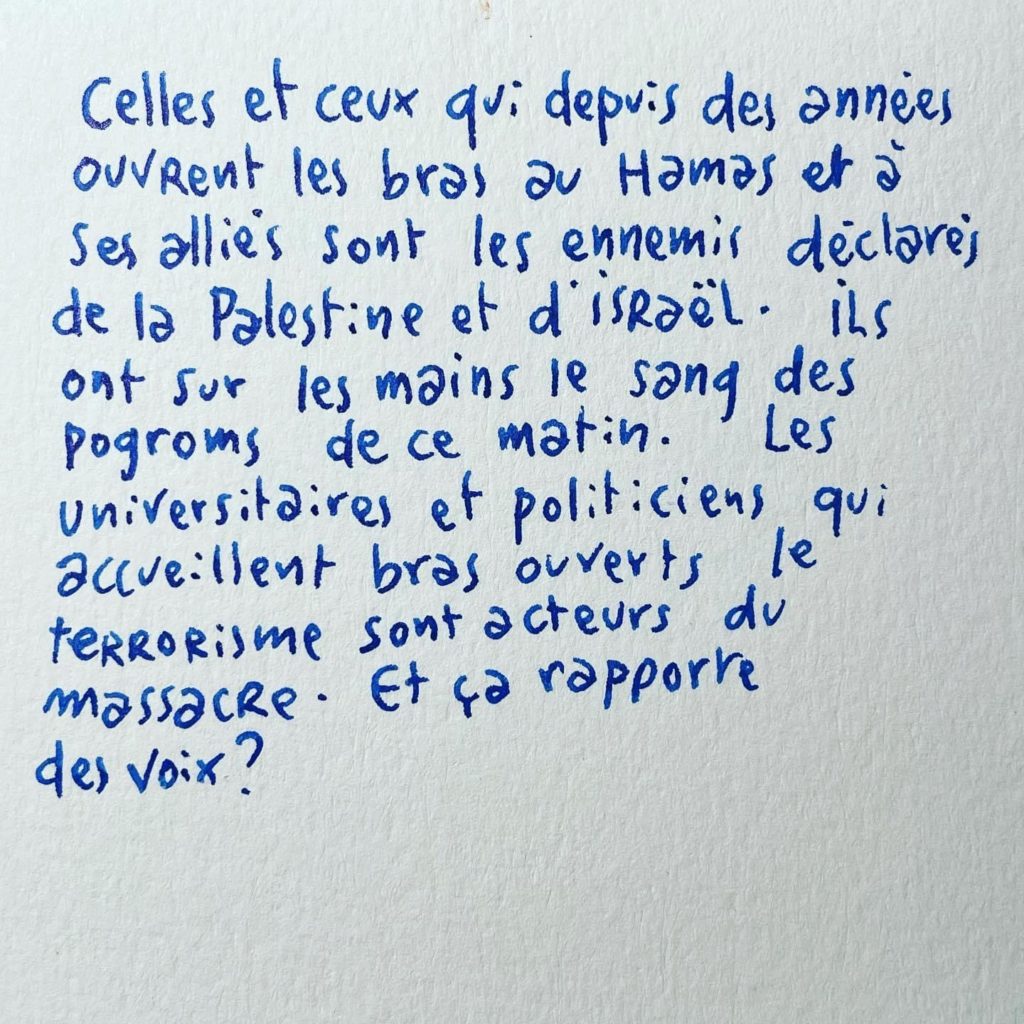 Celles et ceux qui depuis des années
ouvrent les bras au Hamas et à
ses alliés sont les ennemis déclarés
de la Palestine et d'israël. ils
ont sur les mains le sang des
pogroms de ce matin. Les
universitaires et politiciens qui
accueillent bras ouverts le
terrorisme sont acteurs du
massacre. Et ça rapporte
des voix?